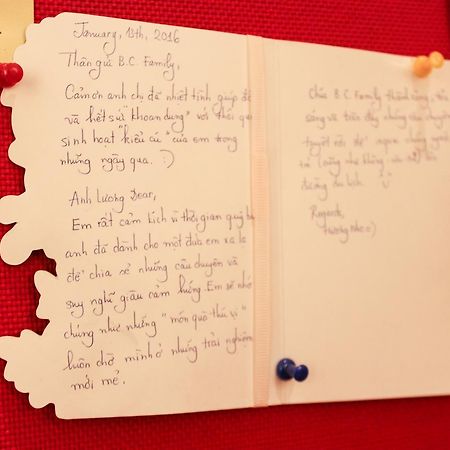 January, 13th, 2016
Thân gửi B.C. Family,
Cảm ơn anh chị đã nhiệt tình giúp đỡ
và hết sức "khoan dung" với thói que
sinh hoạt "kiểu cú" của em trong
những ngày qua. :)
Anh Lương Dear,
Em rất cảm kích vì thời gian quý bá
anh đã dành cho một đứa em xa lạ
để chia sẻ những câu chuyện và
suy nghĩ giàu cảm hứng. Em sẽ nhớ
chúng như những "món quà thú vị"
luôn chờ mình ở những trải nghiệm
mới mẻ.
Chúc B.C. Family thành công,
sáng và tràn đầy những câu chuyện
tuyệt vời để người
ta cũng như không
đường du lịch.
Regards,